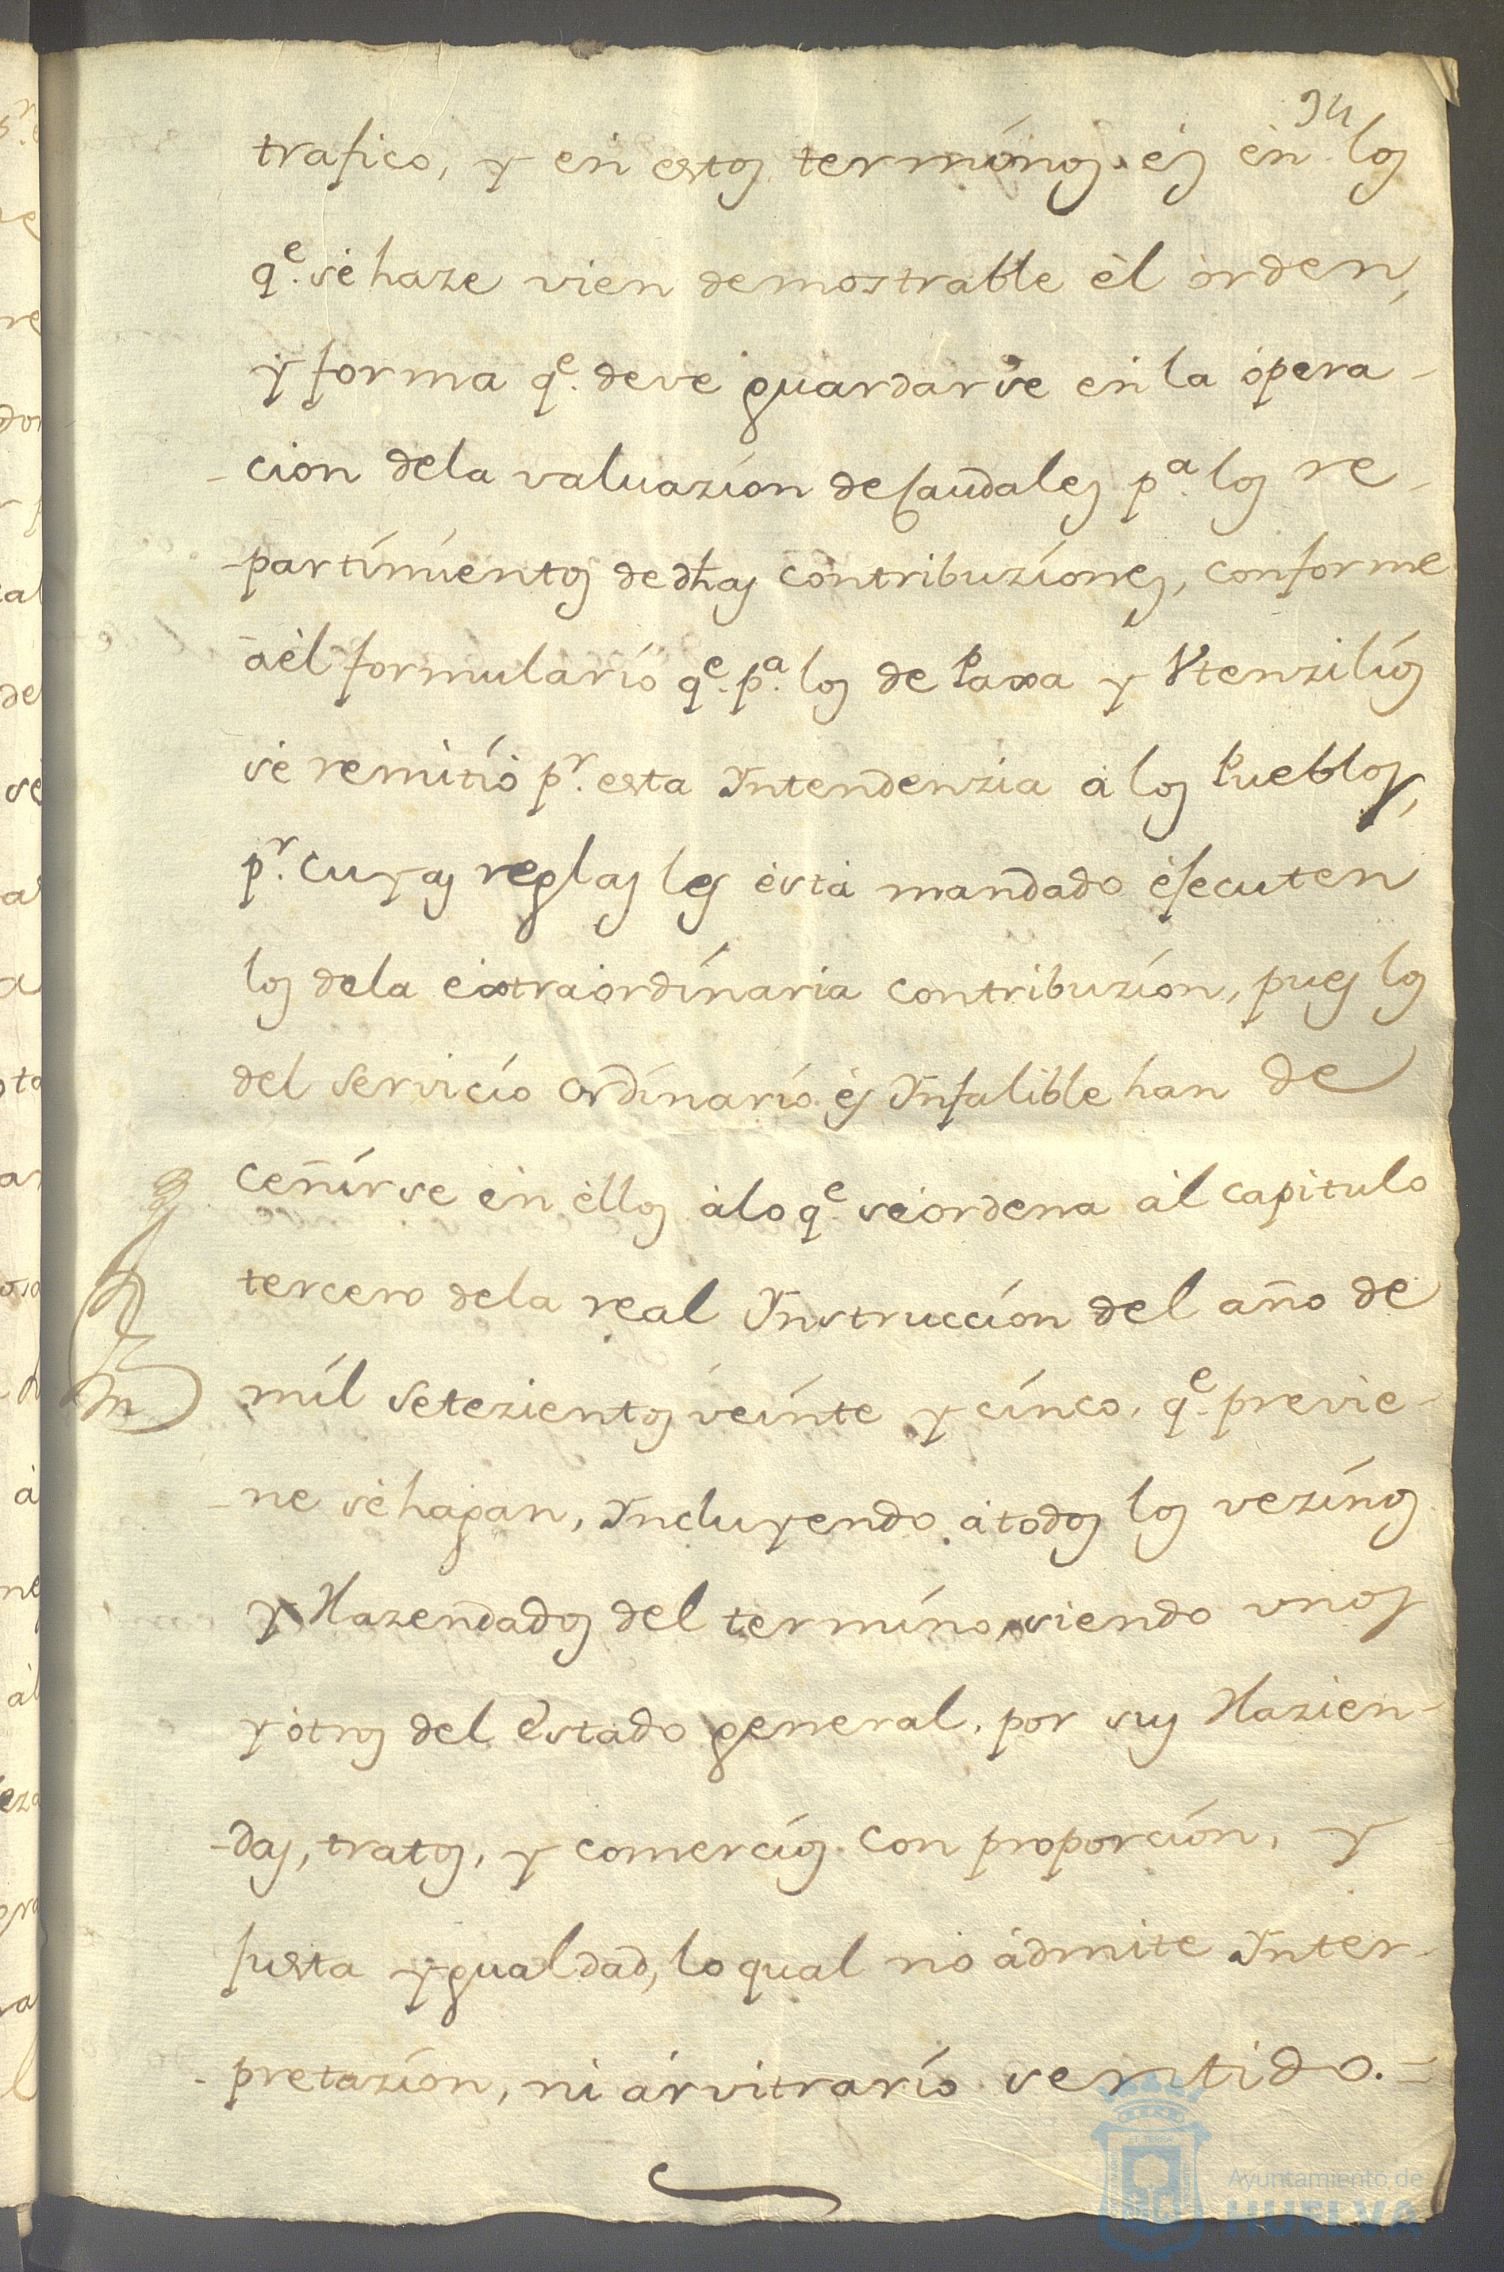 94
trafico, y en estos terminos es en los
qᵉ. se haze vien demostrable èl òrden,
y forma qᵉ. deve guardarse en la ópera-
-cion dela valuazíon de Caudales pᵃ. los re-
-partímíentos de dhas contribuzíones, conforme
a èl formularío qᵉ. pᵃ. los de Paxa y Vtenzilíos
se remitíò pʳ. esta Yntendenzia à los Pueblos,
pʳ. cuyas reglas les èsta mandado èjecuten
los dela extraordínaria contribuzíon, pues los
del Servicío Ordínarío és Ynfalible han de
ceñírse èn èllos àlo qᵉ seòrdena àl capitulo
tercero dela real Ynstruccíon del año de
míl Setezientos veínte y cínco, qᵉ. previe-
-ne sè hagan, Yncluyendo àtodos los vezínos
y Hazendados del termíno, siendo vnos
y òtros del Estado general, por sus Hazien-
-das, tratos, y comercíos con proporcíon, y
justa ygualdad, lo qual no àdmite Ynter-
-pretazíon, ni àrvitrarío sentido.=
Ayuntamiento de
HUELVA